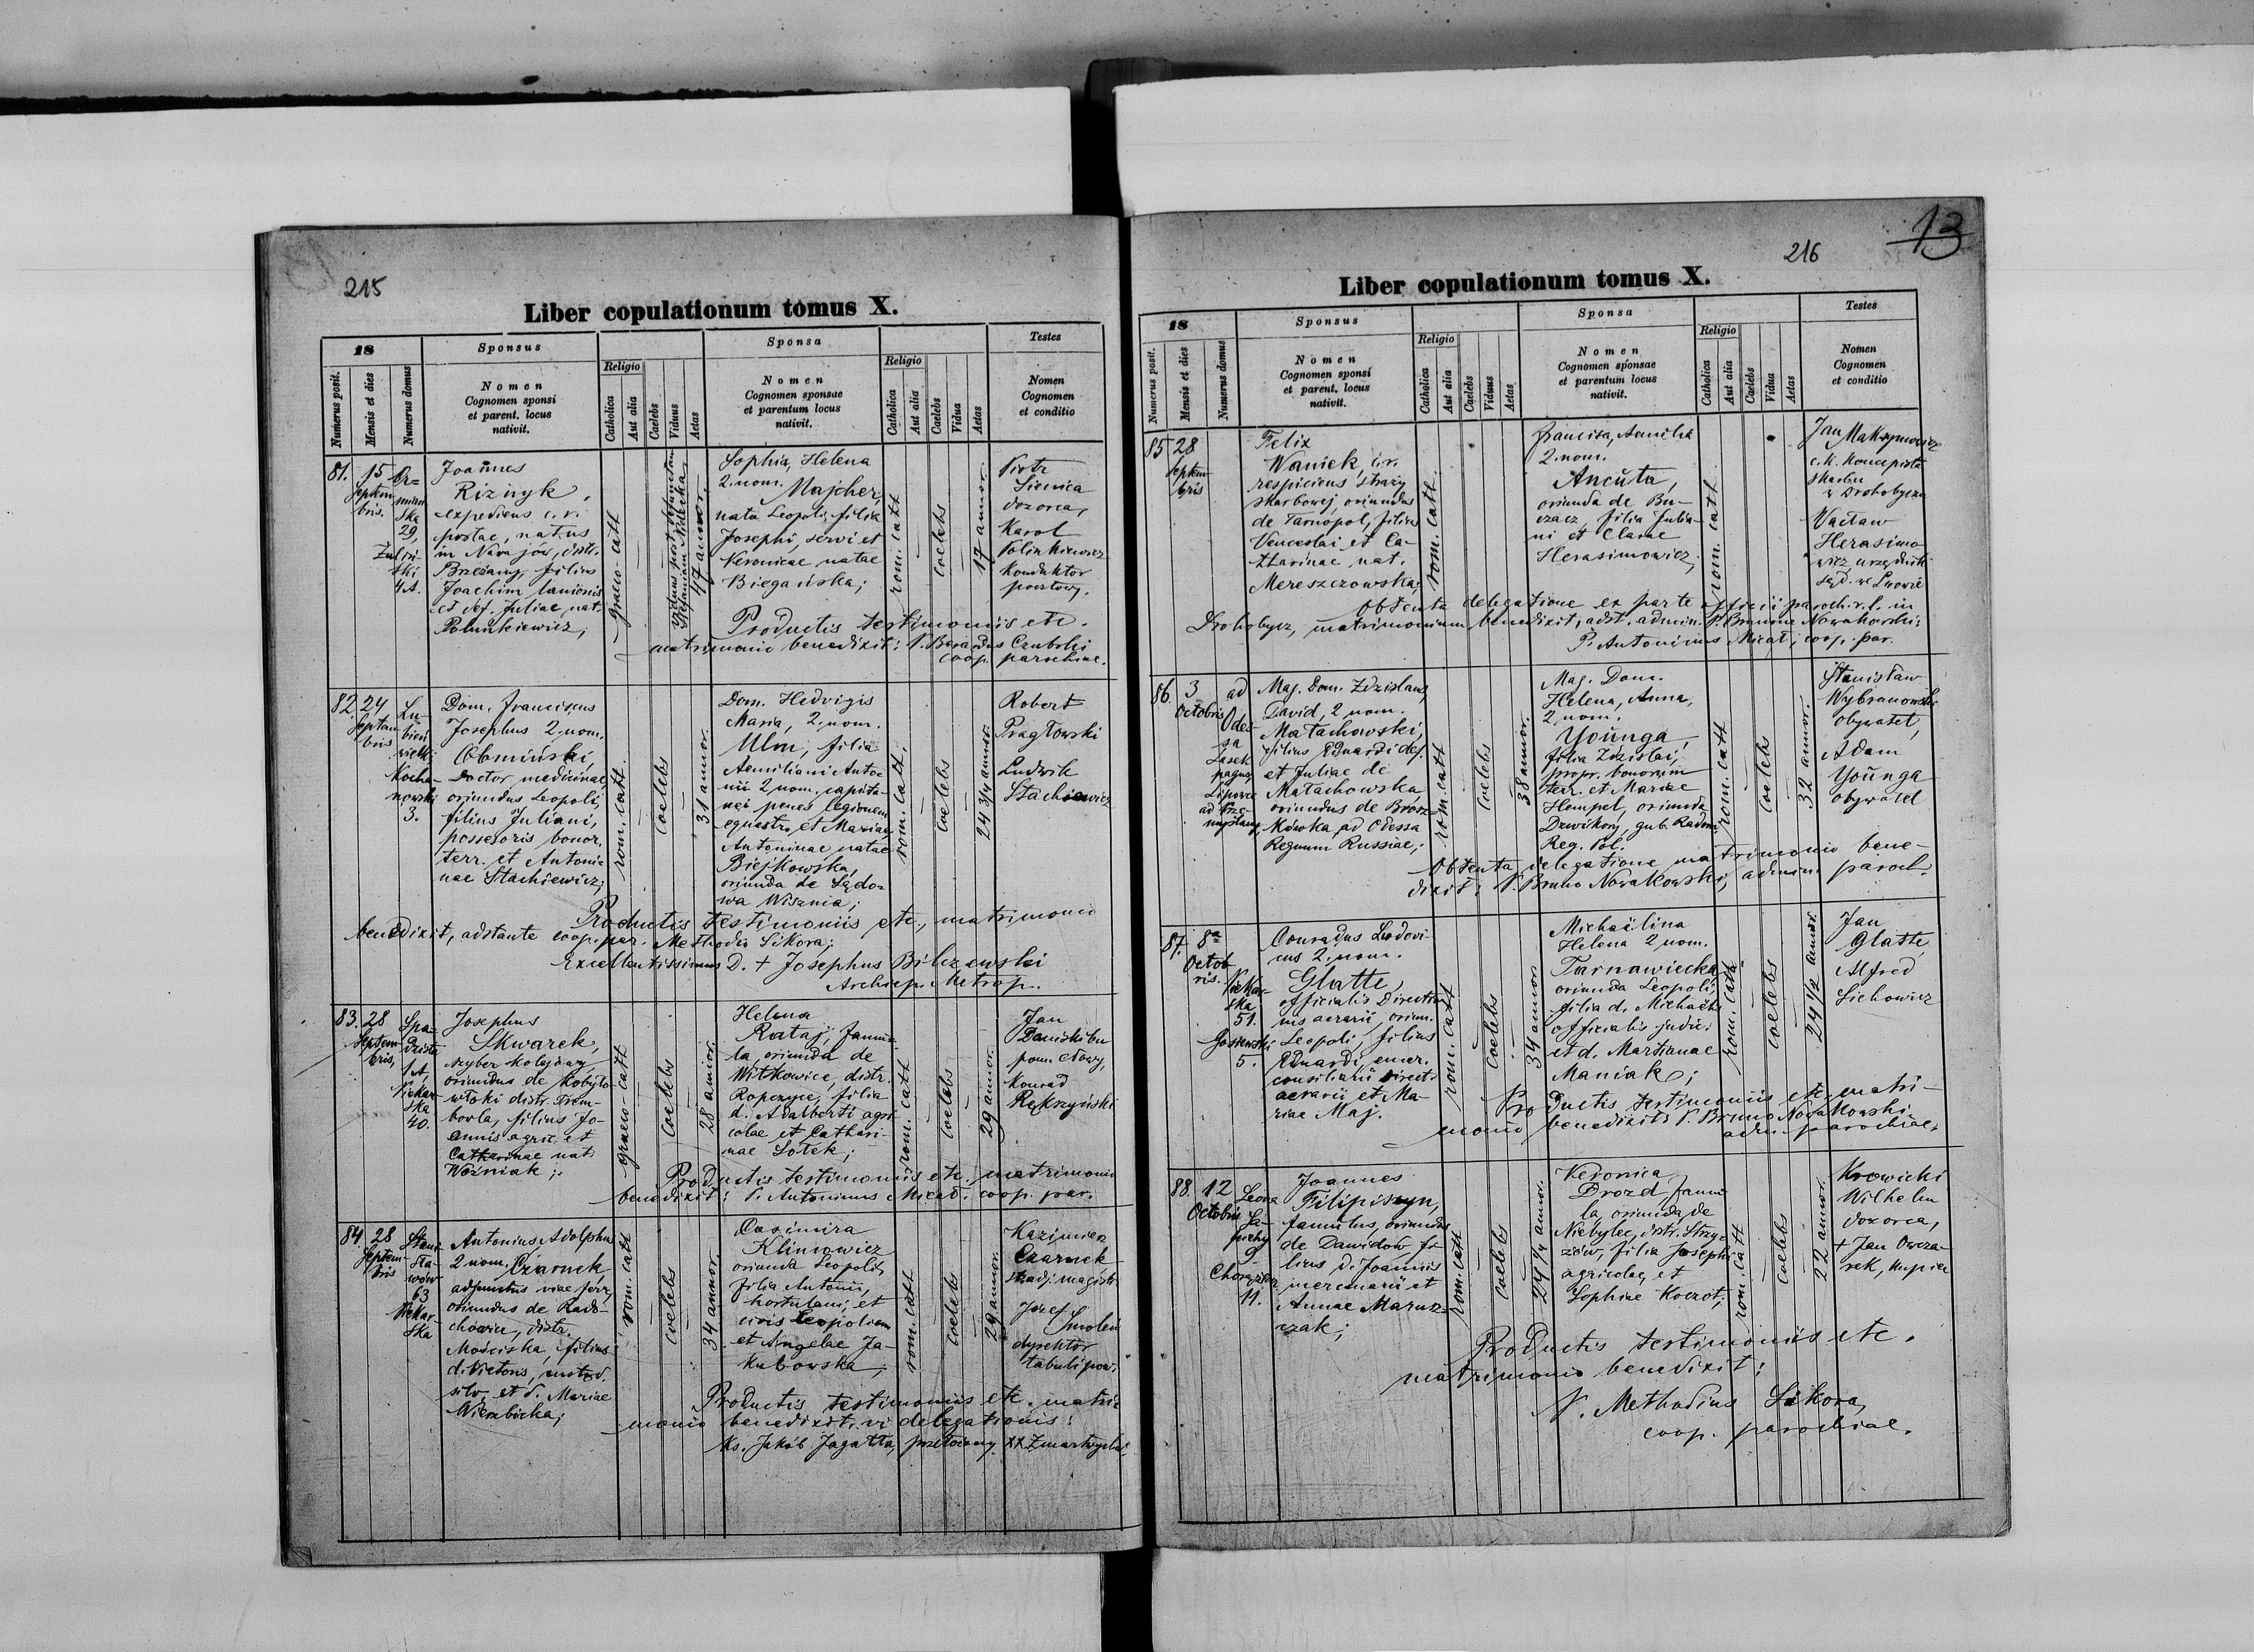 215
Liber copulationum tomus X.
18
Numerus posit.
Mensis et dies
Numerus domus
Sponsus
Nomen
Cognomen sponsi
et parent. locus
nativit.
Religio
Catholica
Aut alia
Caelebs
Viduus
Aetas
Sponsa
Nomen
Cognomen sponsae
et parentum locus
nativit.
Religio
Catholica
Aut alia
Caelebs
Vidua
Aetas
Testes
Nomen
Cognomen
et conditio
81. 15
Septem-
bris.
29,
4 A.
Joannes
Riznyk,
expediens c. r.
postae, natus
in Narajów, distr.
Brzeżany, filius
Joachim lanionis
et def. Juliae nat.
Polunkiewicz;
graeco-cath
47 annor.
Sophia, Helena
2. nom. Majcher,
nata Leopoli, filia
Josephi, servi et
Veronicae natae
Biegańska;
rom. cath
coelebs
17 annor.
Piotr
Sienica
dozorca,
Karol
Polinkiewicz
Konduktor
pocztowy.
Productis testimoniis etc.
matrimonio benedixit: P. Czubski
coop. parochiae.
82. 24
Septem-
bris
Lu-
bień
wielki
Kocha-
nowski
3.
Dom. Franciscus
Josephus 2. nom.
Obmiński,
Doctor medicinae,
oriundus Leopoli,
filius Juliani,
possesoris bonor.
terr. et Antoni-
nae Stachiewicz;
rom. cath.
coelebs
31 annor.
Dom. Hedvigis
Maria, 2. nom.
Ulm, filia
Aemiliani Anto-
nii 2 nom. capita-
nei penes legionem
equestr. et Mariae
Antoninae natae
Biejkowska,
oriunda de Sądo-
wa Wisznia;
rom. cath.
coelebs
24 3/4 annor.
Robert
Pragłowski
Ludwik
Stachiewicz
Productis testimoniis etc., matrimonio
benedixit, adstante coop. par. Methodio Sikora;
Excellentissimus D. + Josephus Bilczewski
Archiep. Metrop.
83. 28
Septem-
bris,
1 A,
Piekar-
ska
40.
Josephus
Skwarek,
szyber kolejowy,
oriundus de Kobyło-
włoki distr. Trem-
bowla, filius Jo-
annis agric. et
Catharinae nat.
Woźniak;
graeco-cath
coelebs
28 annor.
Helena
Rataj, famu-
la, oriunda de
Witkowice, distr.
Ropczyce, filia
d. Adalberti agri-
colae et Cathari-
nae Sołek;
rom. cath
coelebs
29 annor.
Jan
Konrad
Productis testimoniis etc. matrimonio
benedixit: P. Antoninus Micał. coop. par.
84. 28
Septem-
bris
Stani-
sła-
wów
63
Piekar-
ska
Antonius Adolphus
2 nom. Czarnek
adjunctus viae ferr.
oriundus de Rado-
chowce, distr.
Mościska, filius
d. Victoris,
silv. et d. Mariae
Wierzbicka;
rom. cath
coelebs
34 annor.
Casimira
Klimowicz
oriunda Leopoli,
filia Antonii,
hortulani, et
civis Leopoliens.
et Angelae Ja-
kubowska;
rom. cath
coelebs
29 annor.
Kazimierz
Czarnek
adj. magistr.
Józef
Smoleń
dyrektor
Productis testimoniis etc. matri-
monio benedixit vi delegationis:
Ks. Jakób Jagałła, przełożony XX. Zmartwychw.
216
13
Liber copulationum tomus X.
18
Numerus posit.
Mensis et dies
Numerus domus
Sponsus
Nomen
Cognomen sponsi
et parent. locus
nativit.
Religio
Catholica
Aut alia
Caelebs
Viduus
Aetas
Sponsa
Nomen
Cognomen sponsae
et parentum locus
nativit.
Religio
Catholica
Aut alia
Caelebs
Vidua
Aetas
Testes
Nomen
Cognomen
et conditio
85 28
Septem-
bris
Felix
Waniek, c. r.
respiciens straży
skarbowej, oriundus
de Tarnopol, filius
Venceslai et Ca-
tharinae nat.
Mereszczowska;
rom. cath.
Francisca, Aemilia
2. nom.
Ancuta,
oriunda de Bu-
czacz, filia Julia-
ni et Clarae
Herasimowicz;
rom. cath
Jan
Maksymowicz
c. k. koncepista
skarbu
w Drohobyczu
Wacław
Herasimo-
wicz, urzędnik
sąd. we Lwowie
Obtenta delegatione ex parte officii paroch. r. l. in
Drohobycz, matrimonium benedixit, adst. admin. P. Brunone Nowakowski:
P. Antoninus Micał, coop. par.
86. 3
Octobris
ad
Odes-
sa
Lasek
pagus
Lipowce
ad Prze-
myślany,
Mag. Dom. Zdzislaus,
David, 2 nom.
Małachowski,
filius Eduardi def.
et Juliae de
Małachowska,
oriundus de
ad Odessa
Regnum Russiae;
rom. cath
coelebs
38 annor.
Mag. Dom.
Helena, Anna,
2. nom.
Younga,
filia Zdzislai,
propr. bonorum
terr. et Mariae
Hempel, oriunda
gub. Radom,
Reg. Pol.
rom. cath
coelebs
32 annor.
Stanisław
Wybranowski
obywatel,
Adam
Younga
obywatel
Obtenta delegatione matrimonio bene-
dixit: P. Bruno Nowakowski, admin. paroch.
87. 8a
Octob-
ris.
Piekar-
ska
51.
5.
Conradus Ludovi-
cus 2. nom.
Glatte,
officialis Directio-
nis aerarii, oriun.
Leopoli, filius
Eduardi, emer.
consiliarii direct.
aerarii et Ma-
riae Maj.
rom. cath
coelebs
34 annor.
Michaëlina
Helena 2 nom.
Tarnawiecka,
oriunda Leopoli,
filia d. Michaëlis
officialis judic.
et d. Marianae
Maniak;
rom. cath
coelebs
24 1/2 annor.
Jan
Glatte,
Alfred
Lichowicz
Productis testimoniis etc. matri-
monio benedixit: P. Bruno Nowakowski
adm. parochiae.
88. 12
Octobris
Leona
Sa-
piehy
9
11.
Joannes
Filipiszyn,
famulus, oriundus
de Dawidów, fi-
lius d. Joannis
mercenarii et
Annae Marusz-
czak;
rom. cath
coelebs
24 1/4 annor.
Veronica
Drozd, famu-
la, oriunda de
Niebylec, distr. Strzy-
żów, filia Josephi
agricolae, et
Sophiae Koczot;
rom. cath
coelebs
22 annor.
Krowicki
Wilhelm
dozorca,
+ Jan Owcza-
rek, kupiec
Productis testimoniis etc.
matrimonio benedixit:
P. Methodius Sikora,
coop. parochiae.